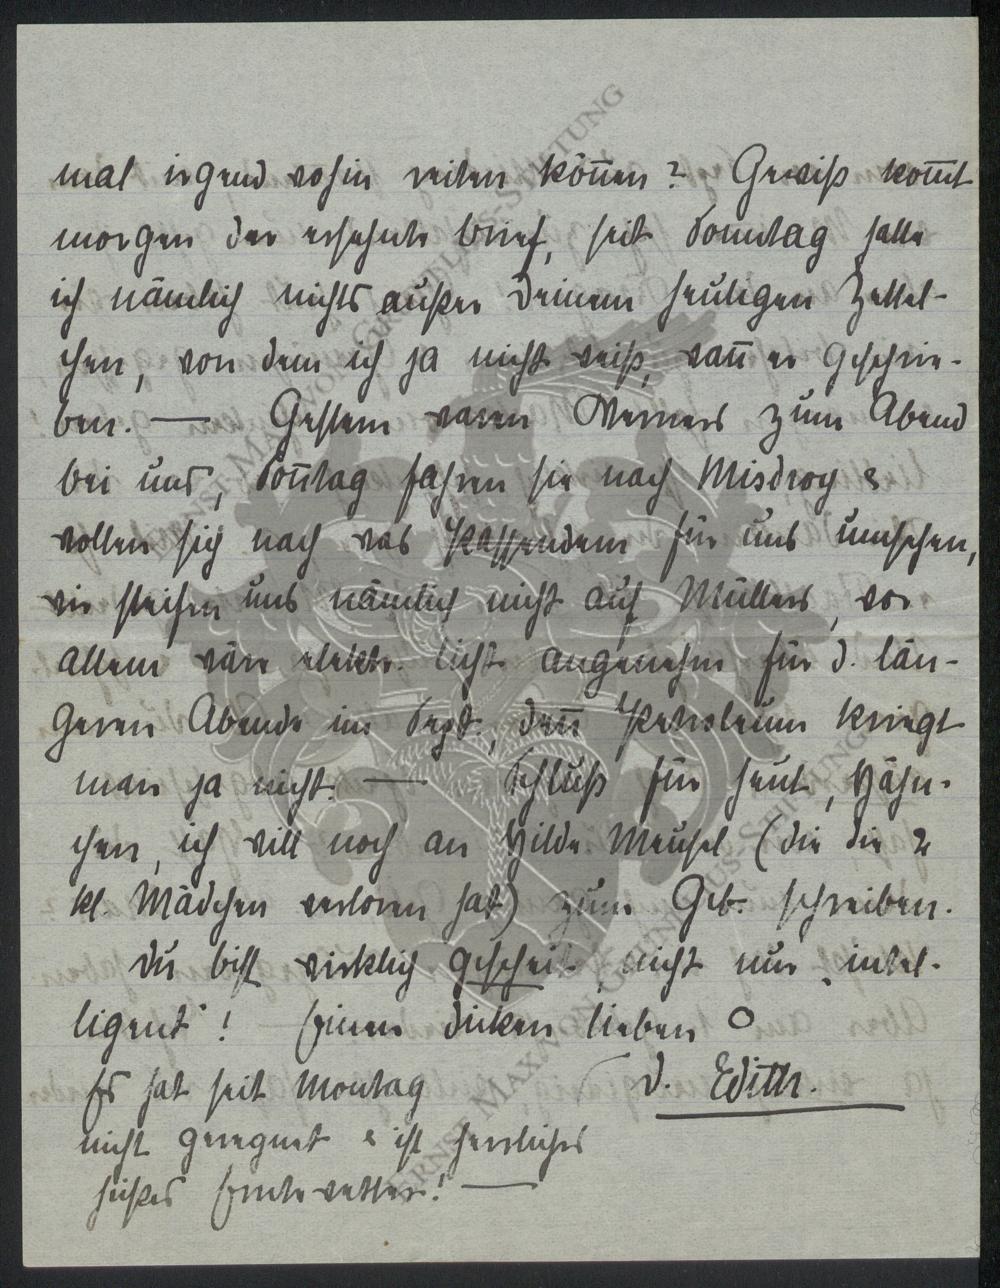 mal irgend wohin reiten kön̄en? Gewiß kom̄t
morgen der ersehnte Brief, seit Sonntag hatte
ich nämlich nichts außer Deinem heutigen Zettel-
chen, von dem ich ja nicht weiß, wan̄ er geschrie-
ben. — Gestern waren Werners zum Abend
bei uns, Son̄tag fahren sie nach Misdroy &
wollen sich nach was Passendem für uns umsehen,
wir steifen uns nämlich nicht auf Müllers, vor
allem wäre elektr. Licht angenehm für d. län-
geren Abende im Sept., den̄ Petroleum kriegt
man ja nicht. — Schluß für heut, Hähn-
chen, ich will noch an Hilde Meusel (die die 2
kl. Mädchen verloren hat) zum Geb. schreiben.
Du bist wirklich gescheit, nicht nur „intel-
ligent"! Einen dicken lieben O
D. Edith.
Es hat seit Montag
nicht geregnet & ist herrliches
heißes Erntewetter! —
ERNST-MAX-VON-GRUNELIUS-STIFTUNG
ERNST-MAX-VON-GRUNELIUS-STIFTUNG